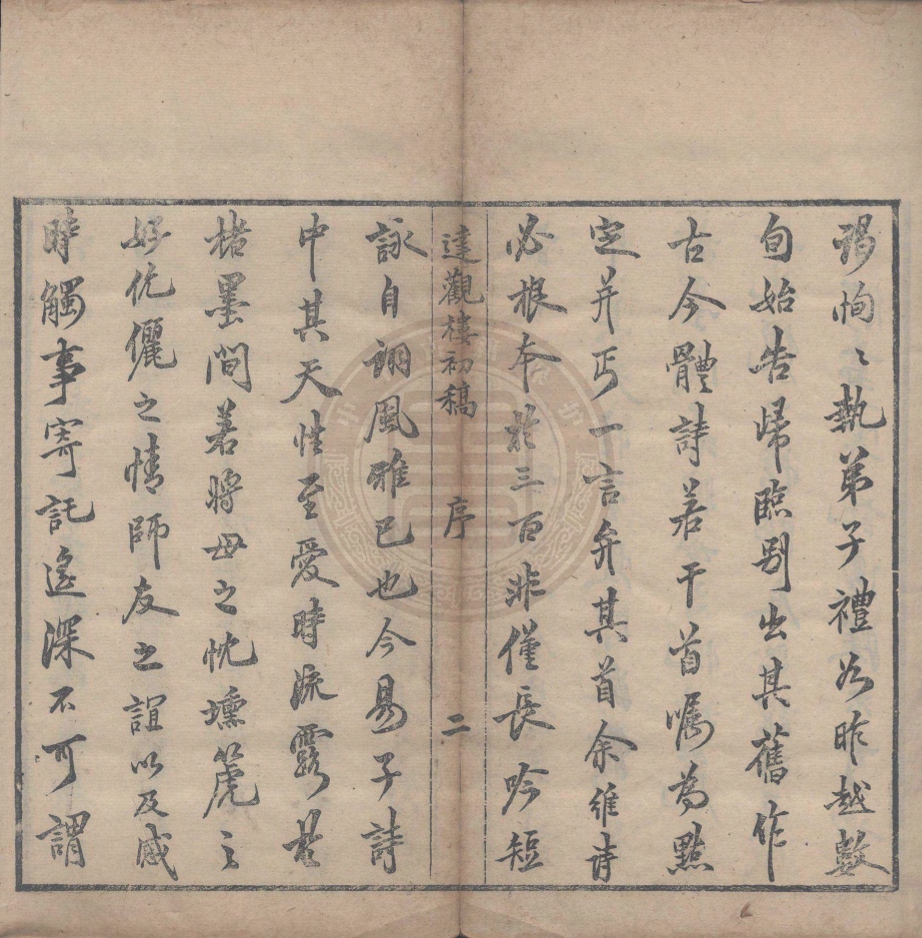 謁恂〻執弟子禮如昨越數
旬始告歸臨別出其舊作
古今體詩若干首囑為點
定并丐一言弁其首余維詩
必根本於三百非僅長吟短
達觀樓初稿 序 二
詠自詡風雅已也今易子詩
中其天性至愛時流露於
楮墨間若將母之忱壎篪之
好伉儷之情師友之誼以及感
時觸事寄託遙深不可謂